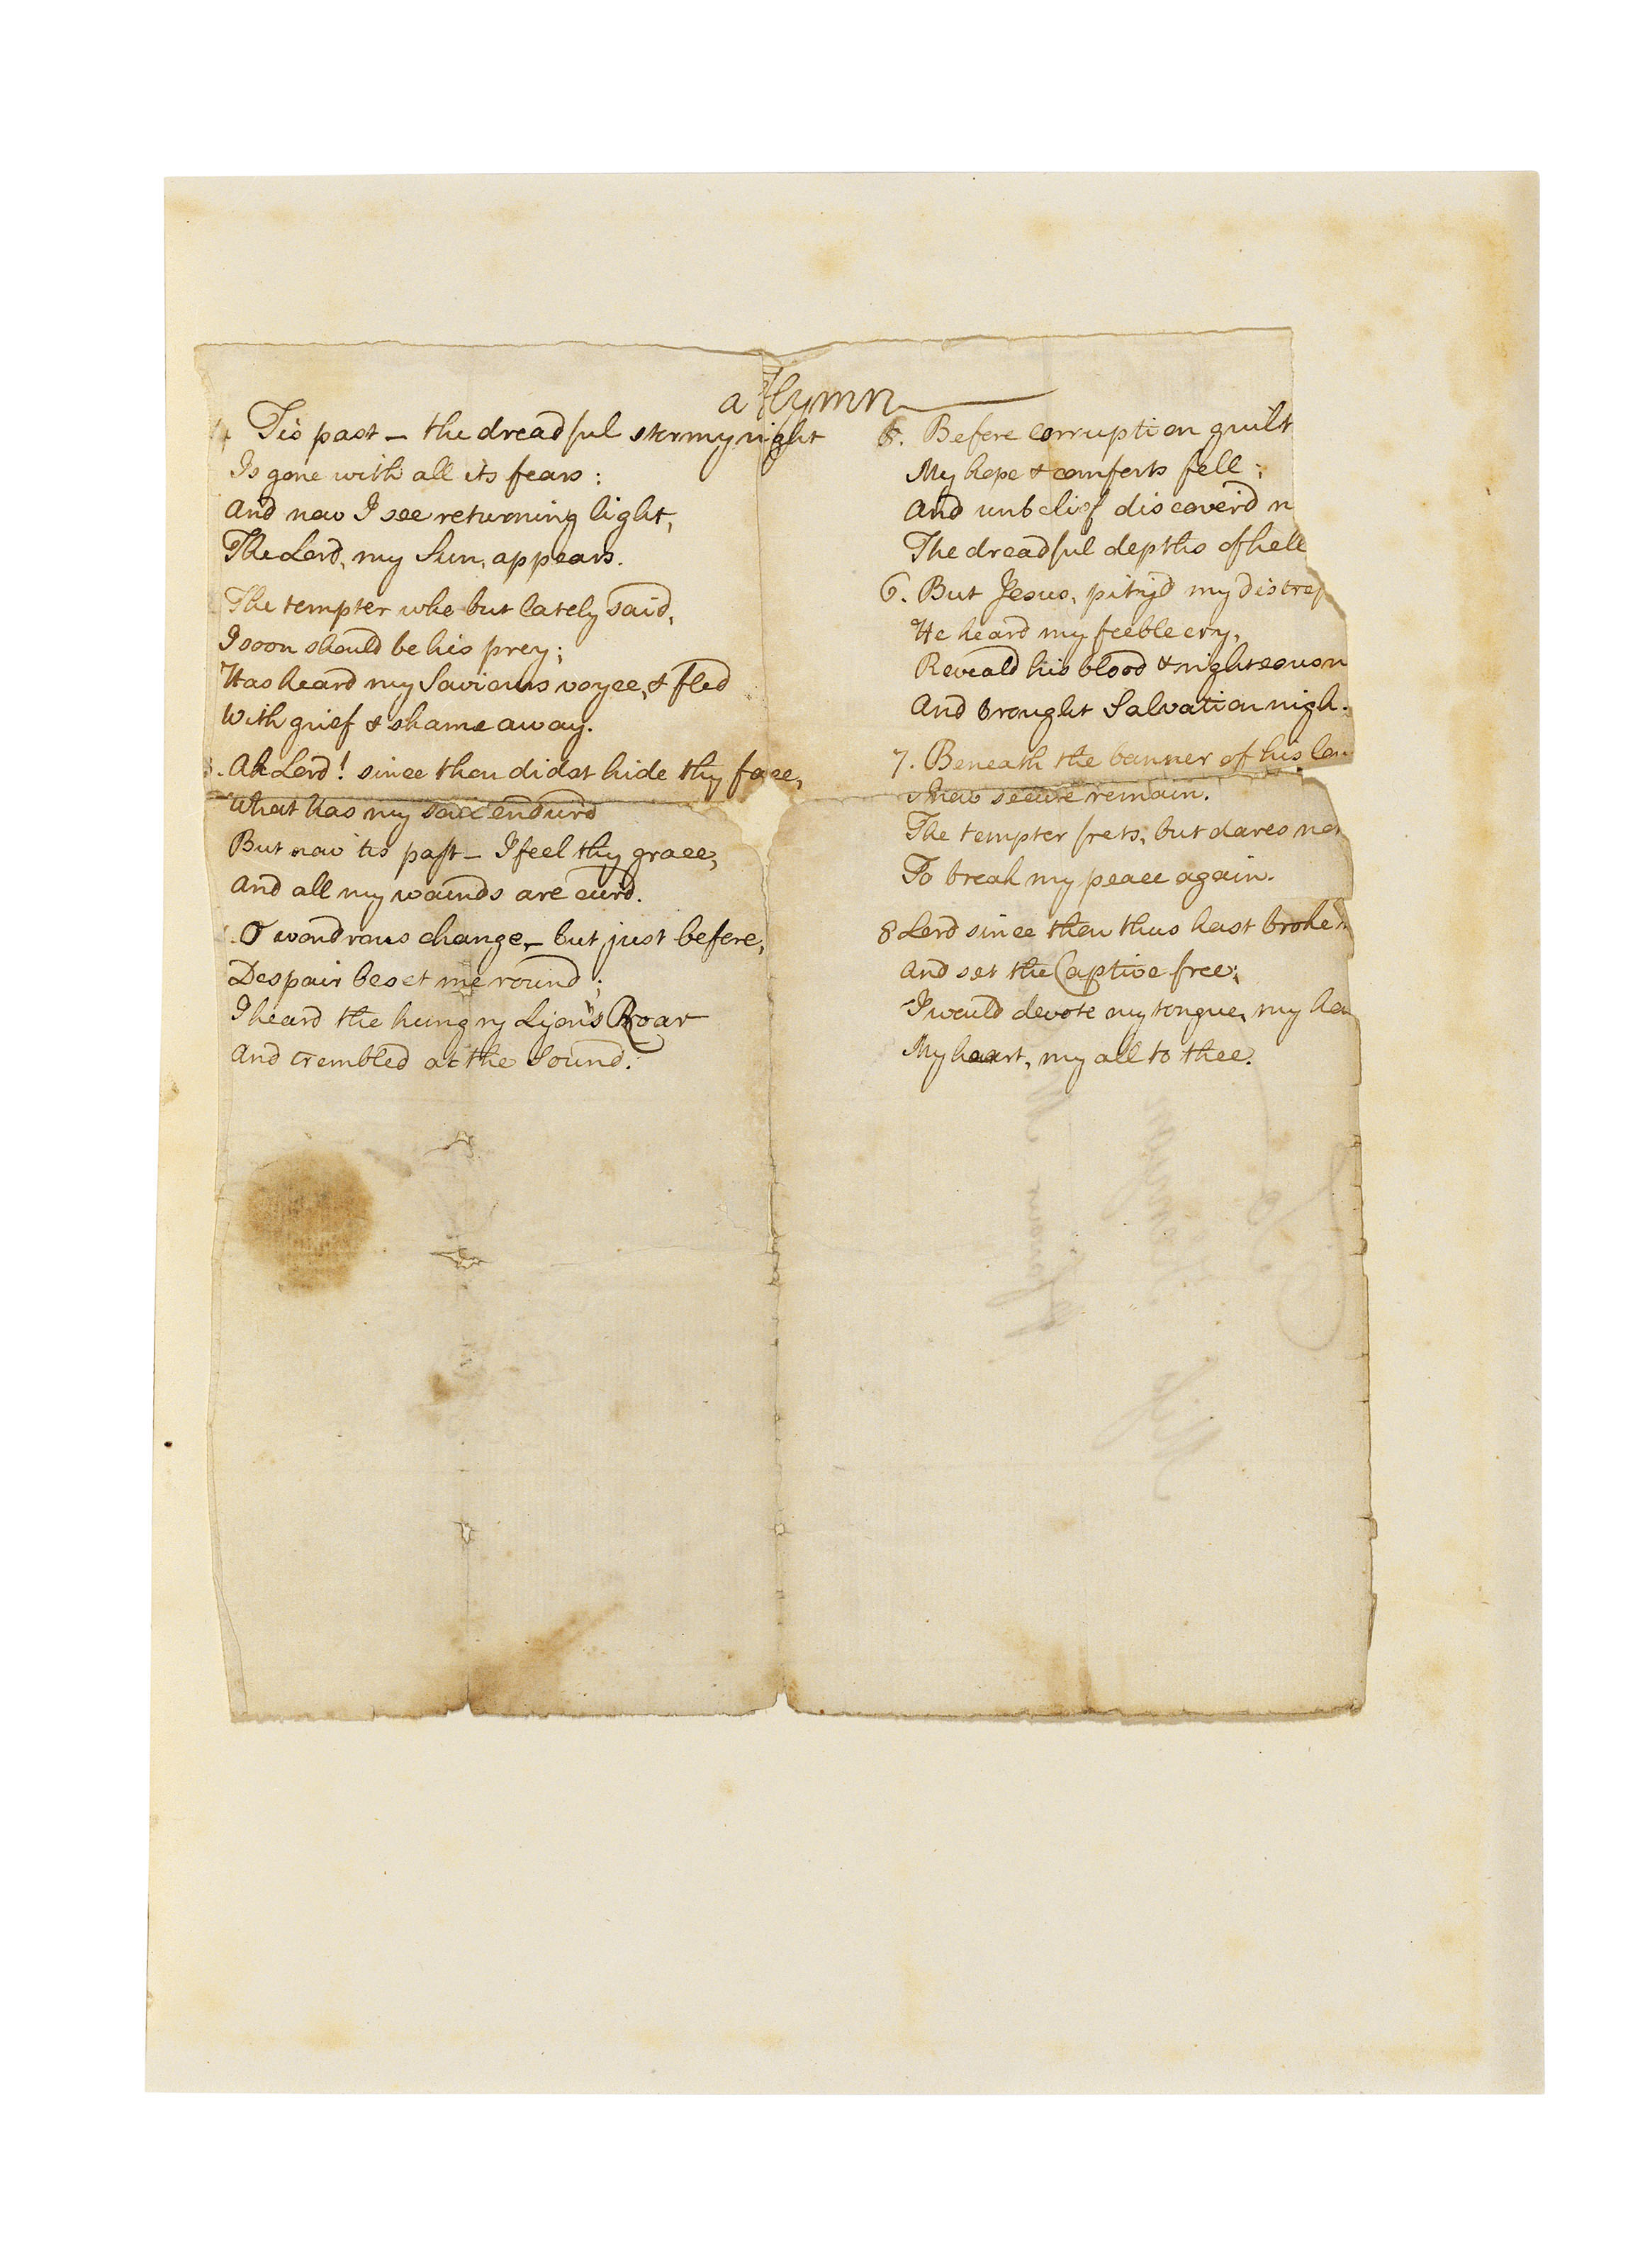 a Hymn
Tis past – the dreadful stormy night
Is gone with all its fears :
And now I see returning light,
The Lord, my Sun, appears.
The tempter who but lately said,
I soon should be his prey ;
Has heard my Saviours voyce, & fled
With grief & shame away.
3. Ah Lord ! since thou didst hide thy face,
What has my soul endurd
But now tis past – I feel thy grace,
And all my wounds are curd.
O wondrous change, – but just before,
Despair beset me round ;
I heard the hungry Lyon's Roar
And trembled at the Sound.
5. Before corruption guilt
My hope & comforts fell ;
And unbelief discoverd
The dreadful depths of hell
6. But Jesus, pityd my distress
He heard my feeble cry,
Reveald his blood & righteousn
And brought Salvation nigh.
7. Beneath the banner of his
I now secure remain.
The tempter frets, but dares not
To break my peace again.
8 Lord since thou thus hast broke
And set the Captive free,
I would devote my tongue, my
My heart, my all to thee.